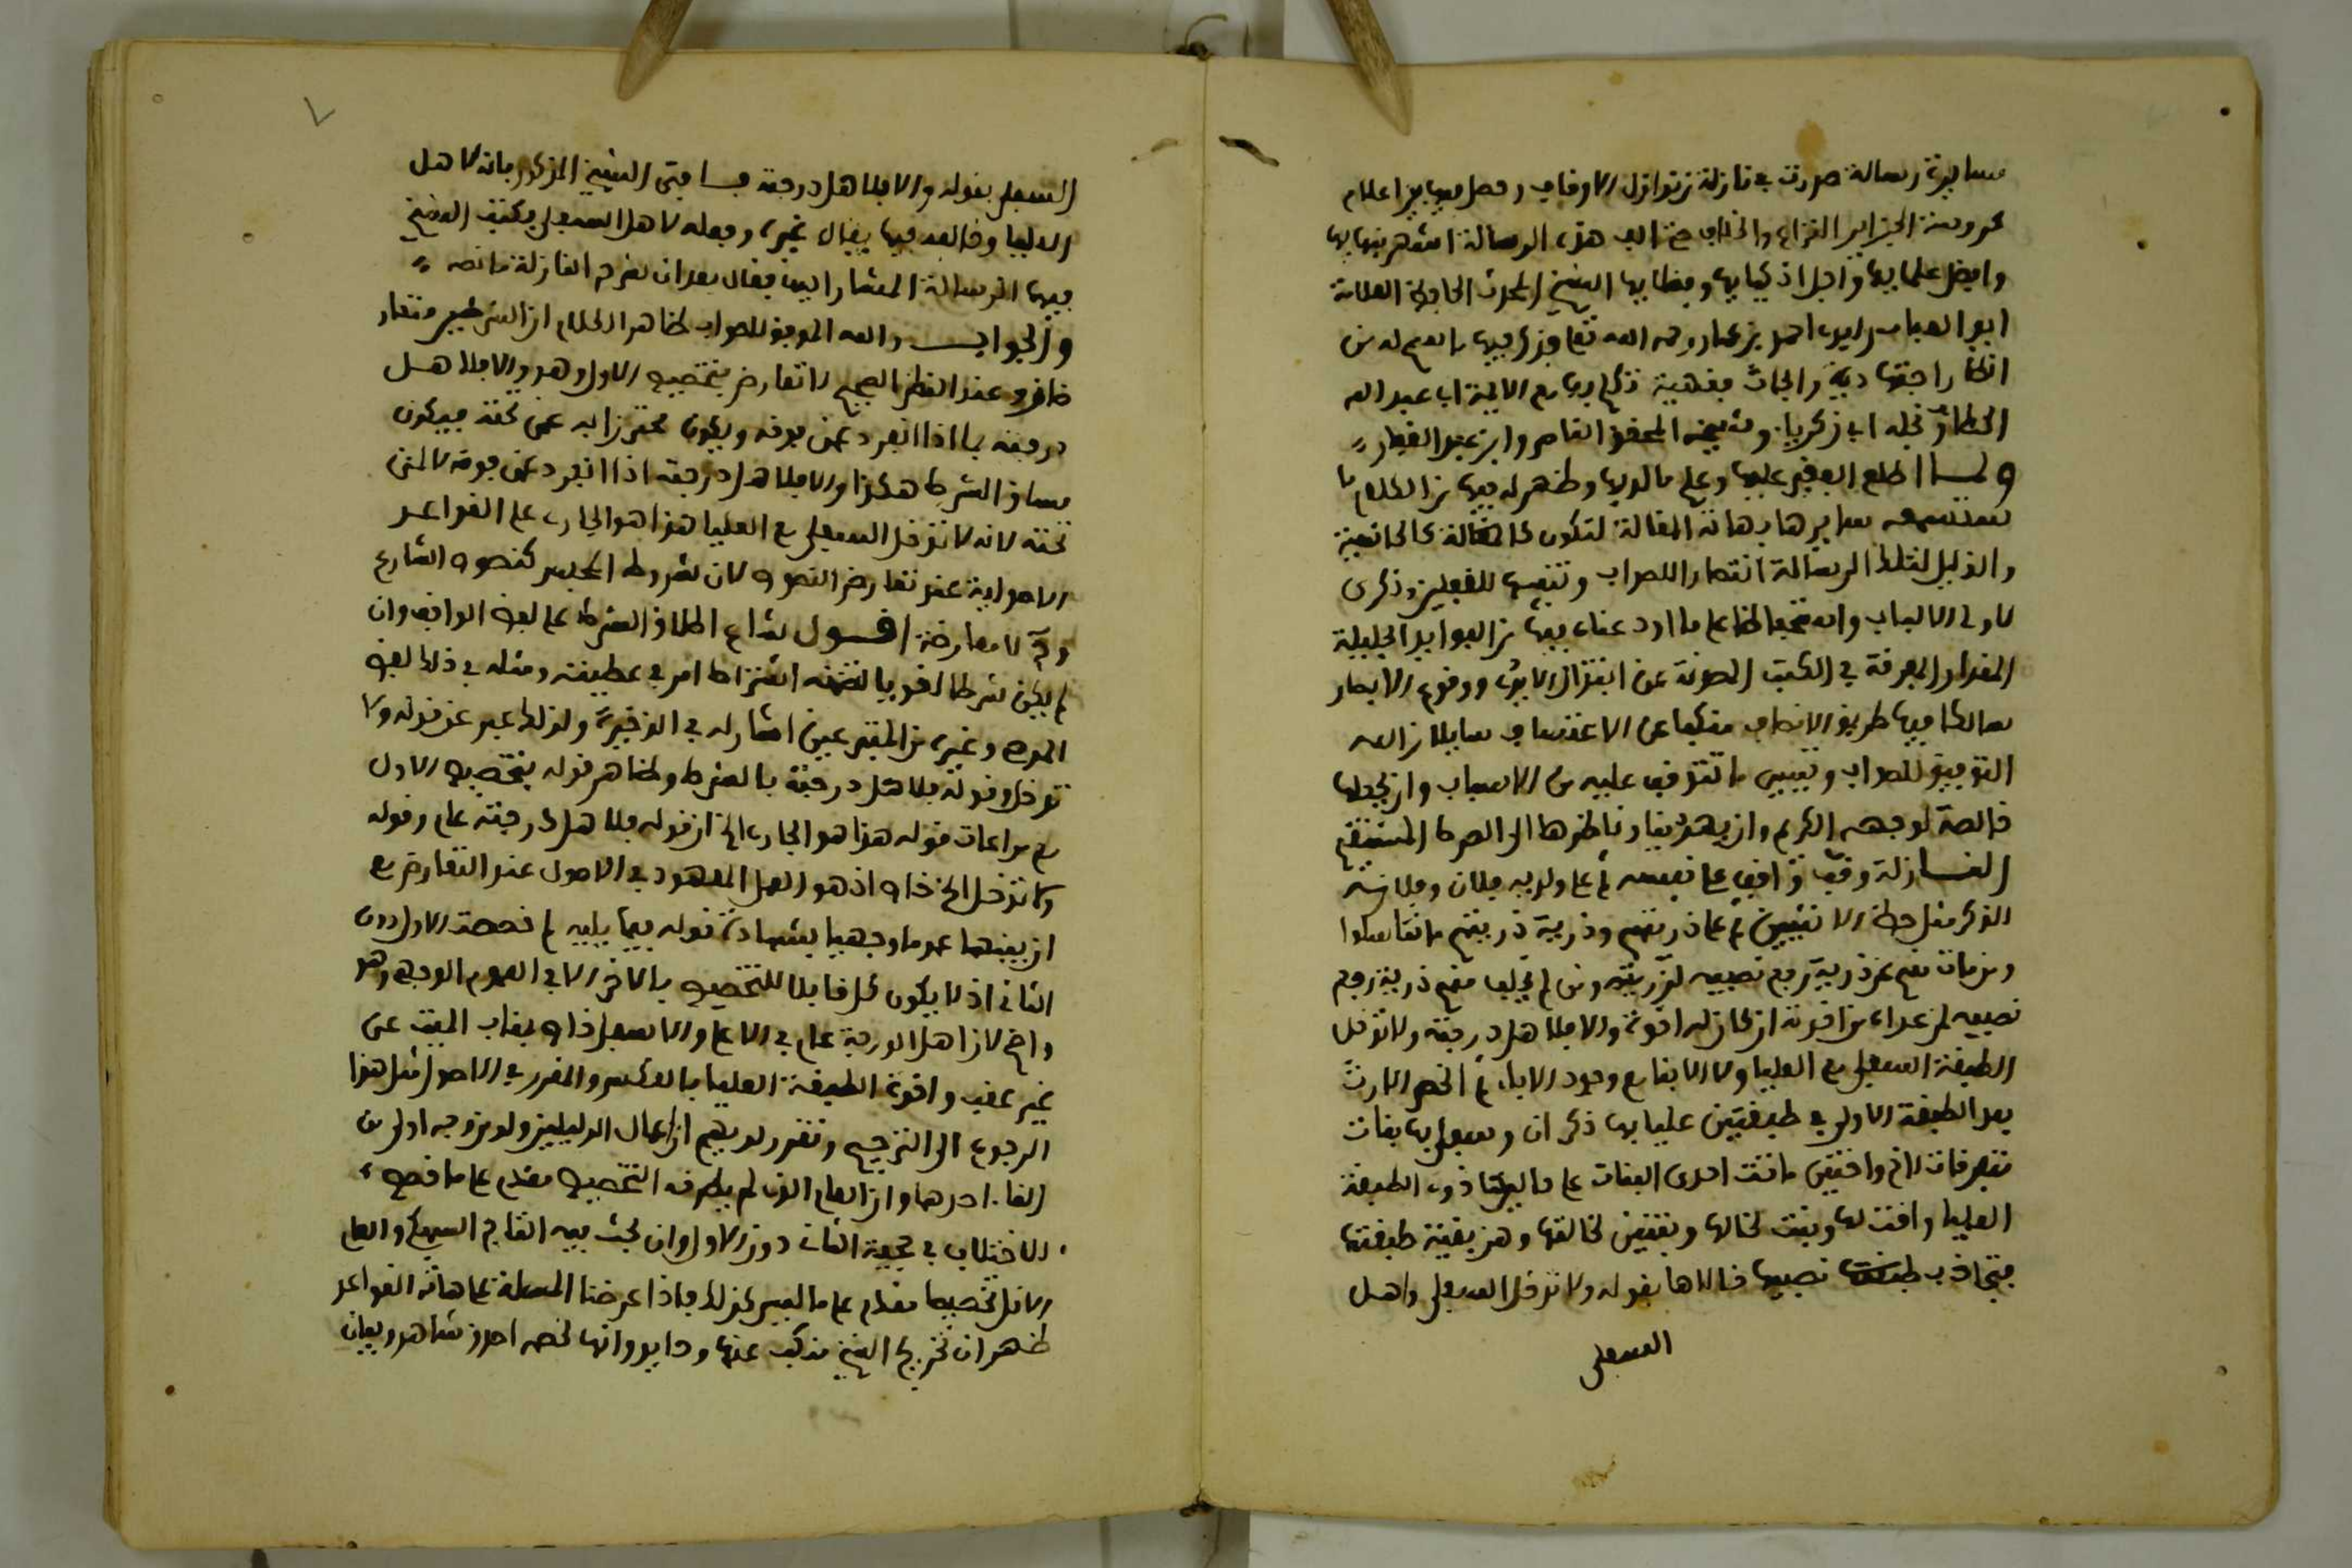 مسايرة رسالة صدرت في نازلة من نوازل الاوقاف وحصل فيها بين اعلام
محروسة الجزاير النزاع والخلاف حتى الف هذه الرسالة اشهر نبهايها
وافضل علمايها واجل اذكيايها وفضلايها الشيخ المحدث الحافظ العلامة
ابو العباس سيدي احمد بن عمار رحمه الله تعالى وذكر فيها ما له من
انظار اجتهادية وابحاث فقهية تكلم بها مع الايمة ابي عبد الله
الحطاب ونجله ابي زكريا وشيخه المحقق الناصر وابن عبد الغفار
ولما اطلع الفقير عليها وعلم ما لديها وظهر له فيها من الكلام ما
سايرها بهاته المقالة لتكون كالحاشية
والذيل لتلك الرسالة انتصارا للصواب وتنبيها للغافلين وذكرى
لاولي الالباب وانه محافظا على ما اودعناه فيها من الفوايد الجليلة
المقدار المعرفة في الكتب المصونة عن ابتذال الايدي ووقوع الابصار
سالكا فيها طريق الانصاف متنكبا عن الاعتساف سايلا من الله
التوفيق للصواب وتيسير ما تتوقف عليه من الاسباب وان يجعلها
خالصة لوجهه الكريم وان يهدينا وناظرها الى الصراط المستقيم
النازلة وقف واقف على نفسه ثم على ولديه فلان وفلانة
الذكر مثل حظ الانثيين ثم على ذريتهم وذرية ذريتهم ما تناسلوا
ومن مات منهم عن ذرية رجع نصيبه لذريته ومن لم يخلف منهم ذرية رجع
نصيبه لمن عداه من اخوته ان كان له اخوة والا فلاهل درجته ولا تدخل
الطبقة السفلى مع العليا ولا الابناء مع وجود الاباء ثم انحصر الارث
بعد الطبقة الاولى في طبقتين عليايها ذكران وسفلايها بنات
متفرقات لاخ واختين ماتت احدى البنات عن خاليها ذوي الطبقة
العليا واختها وبنت لخالها وبنتين لخالتها وهن بقية طبقتها
فتجاذب طبقتها نصيبها خالاها بقوله ولا تدخل السفلى واهل
السفلى
السفلى بقوله والا فلاهل درجته فافتى الشيخ المذكور بانه لاهل
العليا وخالفه فيها غيره وجعله لاهل السفلى فكتب الشيخ
فيها الرسالة المشار اليها فقال بعد ان نص النازلة ما نصه
والجواب والله الموفق للصواب ظاهر الكلام ان الشرطين متعارضان
وعند النظر الصحيح لا تعارض بتخصيص الاول وهو والا فلاهل
درجته بما اذا انفرد عمن فوقه ويكون محترزا به عمن تحته فيكون
مساق الشرط هكذا والا فلاهل درجته اذا انفرد عمن فوقه لا لمن
تحته لانه لا تدخل السفلى مع العليا هذا هو الجاري على القواعد
الاصولية عند تعارض النصوص لان شروط المحبس كنصوص الشارع
وثم لا معارضة اقول شاع اطلاق الشرط على لفظ الواقف وان
لم يكن شرطا لغويا لتضمنه اشتراط امر في عطيته ومثله في ذلك لفظ
الموصي وغيره من المتبرعين اشار له في الذخيرة ولذلك عبر عن قوله ولا
تدخل وقوله فلاهل درجته بالشرط وظاهر قوله بتخصيص الاول
مع مراعات قوله هذا هو الجاري الخ ان قوله فلاهل درجته عام وقوله
ولا تدخل الخ خاص اذ هو العمل المعهود في الاصول عند التعارض مع
ان بينهما عموما وجهيا بشهادة قوله فيما يليه لم خصصت الاول دون
الثاني اذ لا يكون كل قابلا للتخصيص بالاخر الا في العموم الوجهي وهو
واضح لان اهل الدرجة عام في الاعلى والاسفل خاص بغياب الميت عن
غير عقب واخوة الطبقة العليا بالعكس والمقرر في الاصول مثل هذا
الرجوع الى الترجيح وتقرر لديهم ان اعمال الدليلين ولو من وجه اولى من
الغاء احدهما وان العام الذي لم يطرقه التخصيص مقدم على ما خص
الاختلاف في حجية الثاني دون الاول وان بحث فيه التاج السبكي والعام
الاقل تخصيصا مقدم على ما ليس كذلك فاذا عرضنا المسئلة على هاته القواعد
ظهر ان تخريج الشيخ متنكب عنها وحايد وانها لخصمه اعدل شاهد وبيان